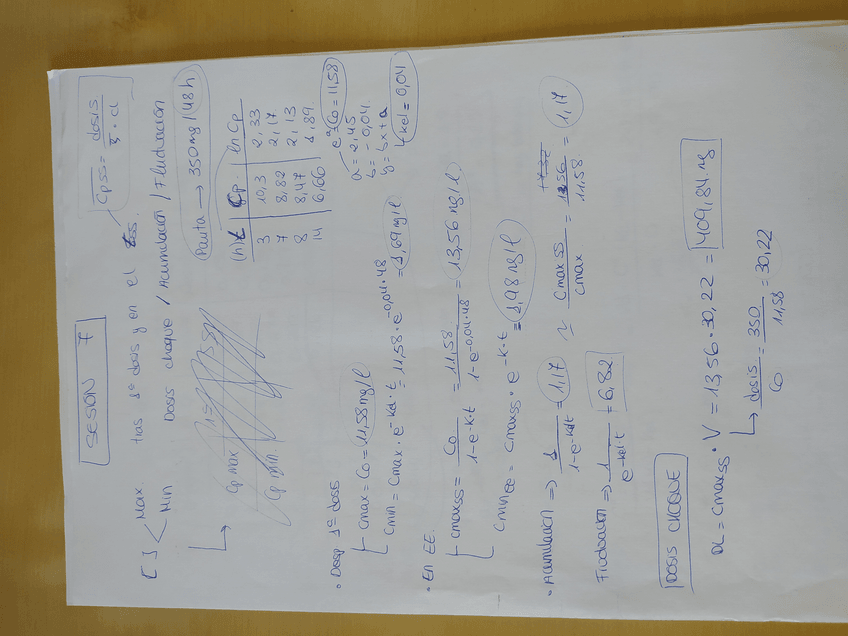 SESION 7
[ ] < Max. tras 1ª dosis y en el EE. Cpss = dosis / ℥ · Cl
Min Dosis choque / Acumulación / Fluctuación
Pauta → 350 mg / 48 h
Cp max
Cp min
(h) t | Cp | ln Cp
3 | 10,3 | 2,33
7 | 8,82 | 2,17
8 | 8,47 | 2,13
14 | 6,66 | 1,89
e^a = C0 = 11,58
a = 2,45
b = -0,04
y = bx + a
kel = 0,04
• Desp 1ª dosis
Cmax = C0 = 11,58 mg/l
Cmin = Cmax · e^-kel·t = 11,58 · e^-0,04·48 = 1,69 mg/l
• En EE.
Cmaxss = C0 / 1-e^-k·t = 11,58 / 1-e^-0,04·48 = 13,56 mg/l
Cmin EE = Cmaxss · e^-k·t = 1,98 mg/l
• Acumulación ⇒ 1 / 1-e^-kel·t = 1,17 ≃ Cmaxss / Cmax = 13,56 / 11,58 = 1,17
Fluctuación ⇒ 1 / e^-kel·t = 6,82
DOSIS CHOQUE
DL = Cmaxss · V = 13,56 · 30,22 = 409,84 mg
↳ dosis / C0 = 350 / 11,58 = 30,22